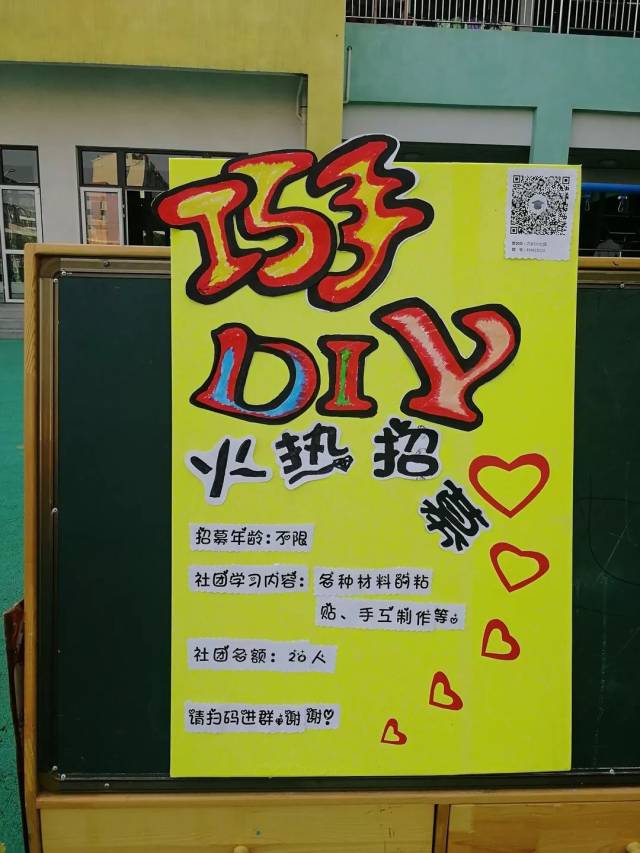 巧手
DIY
火热招募
招募年龄：不限
社团学习内容：各种材料的粘
贴、手工制作等。
社团名额：20人
请扫码进群，谢谢！